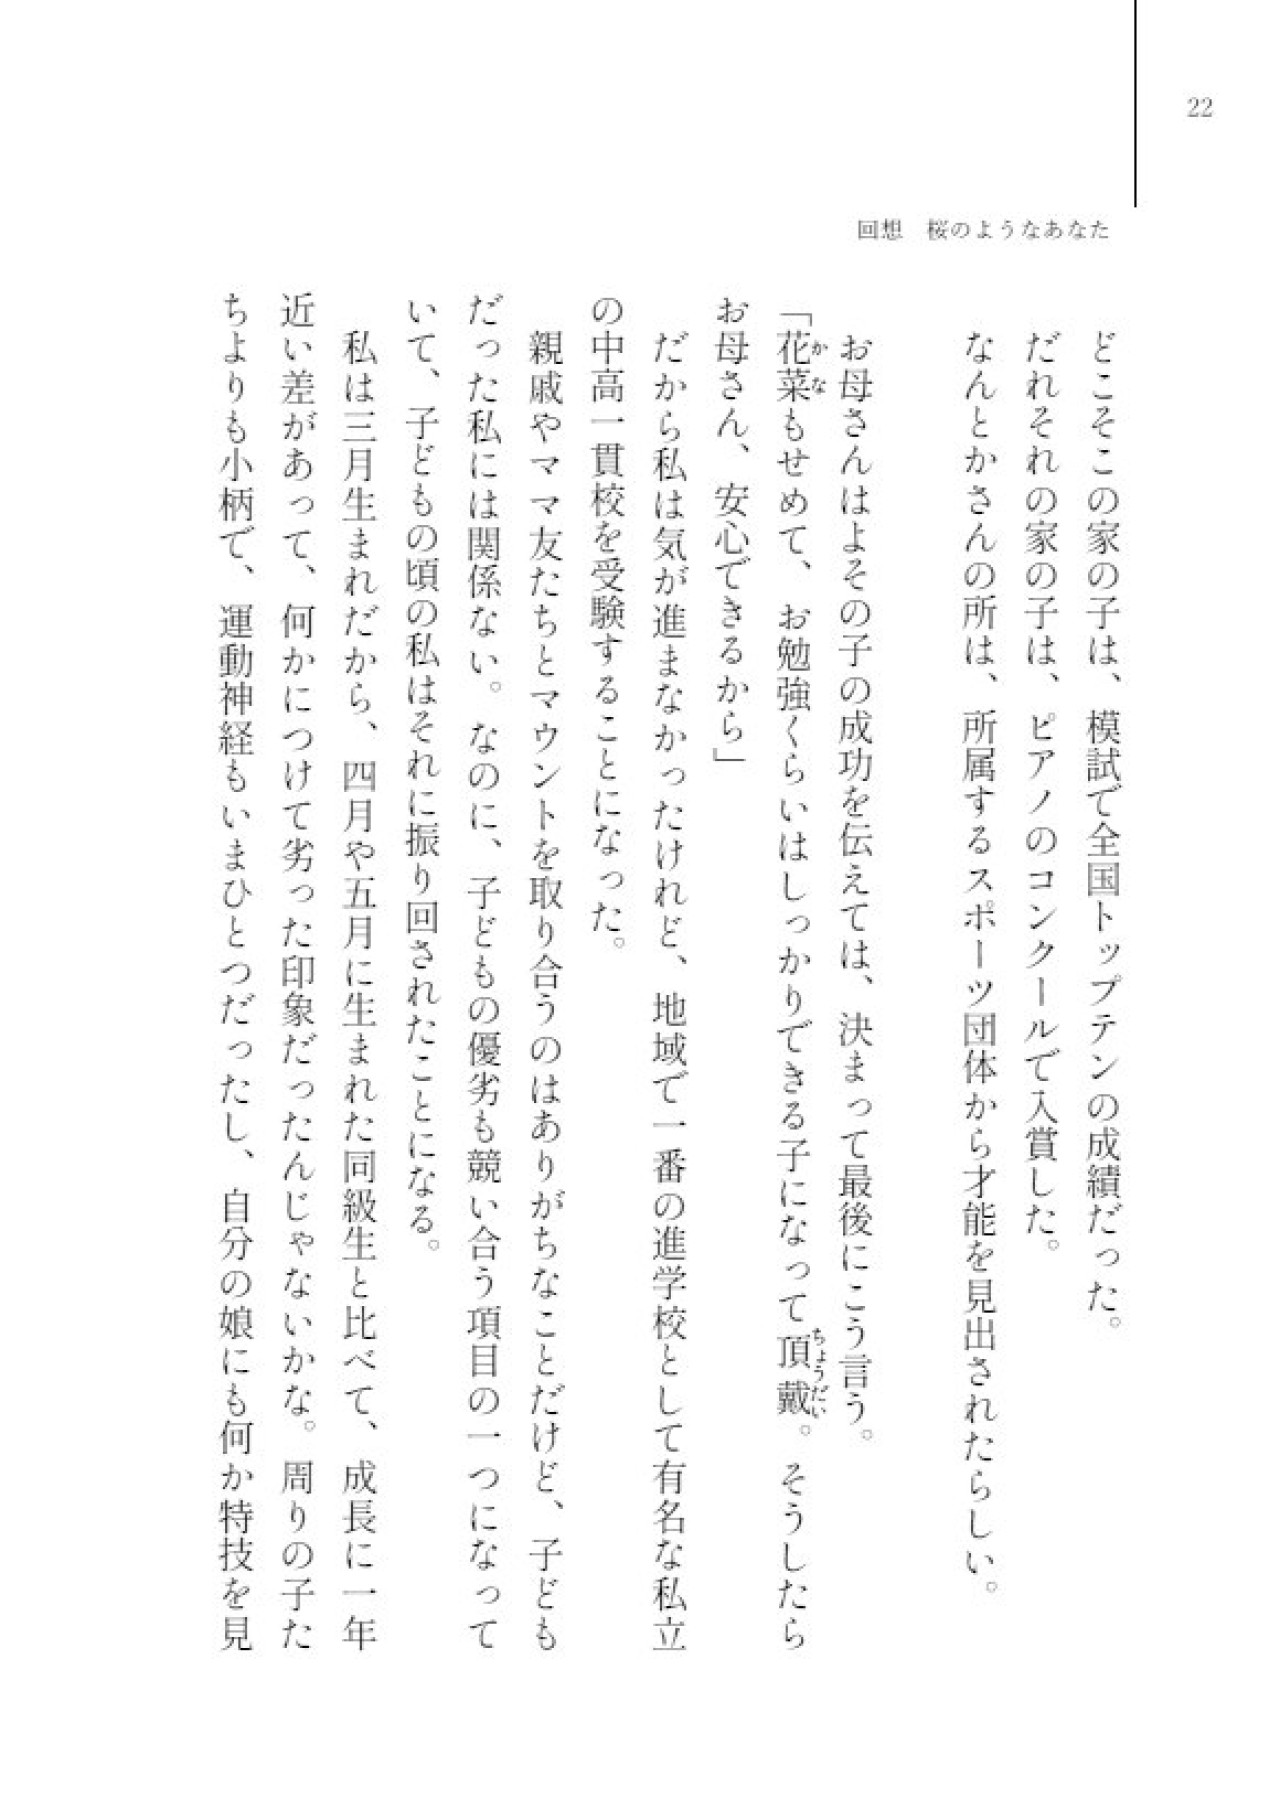 22
回想　桜のようなあなた
どこそこの家の子は、模試で全国トップテンの成績だった。
だれそれの家の子は、ピアノのコンクールで入賞した。
なんとかさんの所は、所属するスポーツ団体から才能を見出されたらしい。
お母さんはよその子の成功を伝えては、決まって最後にこう言う。
「花菜もせめて、お勉強くらいはしっかりできる子になって頂戴。そうしたら
お母さん、安心できるから」
だから私は気が進まなかったけれど、地域で一番の進学校として有名な私立
の中高一貫校を受験することになった。
親戚やママ友たちとマウントを取り合うのはありがちなことだけど、子ども
だった私には関係ない。なのに、子どもの優劣も競い合う項目の一つになって
いて、子どもの頃の私はそれに振り回されたことになる。
私は三月生まれだから、四月や五月に生まれた同級生と比べて、成長に一年
近い差があって、何かにつけて劣った印象だったんじゃないかな。周りの子た
ちよりも小柄で、運動神経もいまひとつだったし、自分の娘にも何か特技を見